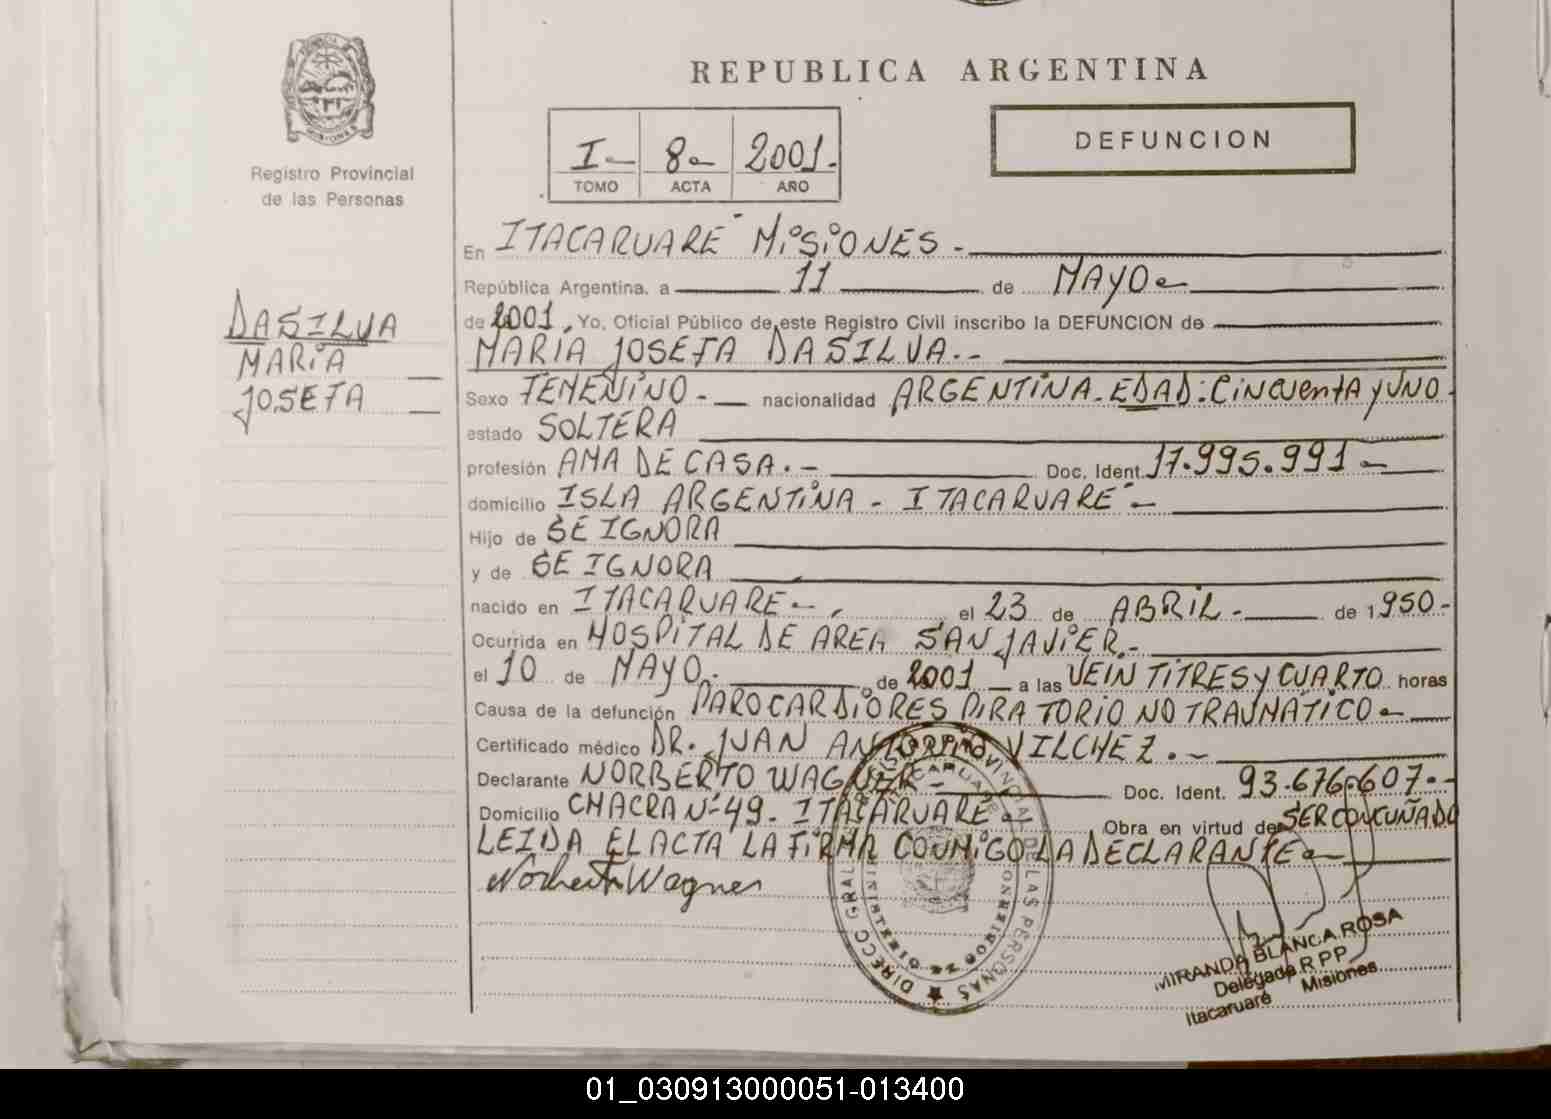 REPUBLICA ARGENTINA
MISIONES
Registro Provincial
de las Personas
I- 8- 2001.
TOMO ACTA AÑO
DEFUNCION
DASILVA
MARIA
JOSEFA
En ITACARUARE MISIONES -
República Argentina, a 11 de MAYO -
de 2001, Yo, Oficial Público de este Registro Civil inscribo la DEFUNCION de
MARIA JOSEFA DASILVA.-
Sexo FEMENINO.- nacionalidad ARGENTINA. EDAD: CINCUENTA Y UNO.
estado SOLTERA
profesión AMA DE CASA.- Doc. Ident. 17.995.991-
domicilio ISLA ARGENTINA - ITACARUARE -
Hijo de SE IGNORA
y de SE IGNORA
nacido en ITACARUARE-. el 23 de ABRIL.- de 1950-
Ocurrida en HOSPITAL DE AREA SAN JAVIER.-
el 10 de MAYO. de 2001 a las VEINTITRES Y CUARTO horas
Causa de la defunción PARO CARDIORESPIRATORIO NO TRAUMATICO -
Certificado médico DR. JUAN ANTONIO VILCHEZ.-
Declarante NORBERTO WAGNER - Doc. Ident. 93.676.607.-
Domicilio CHACRA Nº 49. ITACARUARE - Obra en virtud de SER CONCUÑADO
LEIDA EL ACTA LA FIRMA CONMIGO LA DECLARANTE -
Norberto Wagner
DIRECC GRAL PROVINCIAL DE LAS PERSONAS
MIRANDA BLANCA ROSA
Delegada R P P
Itacaruaré Misiones
01_030913000051-013400